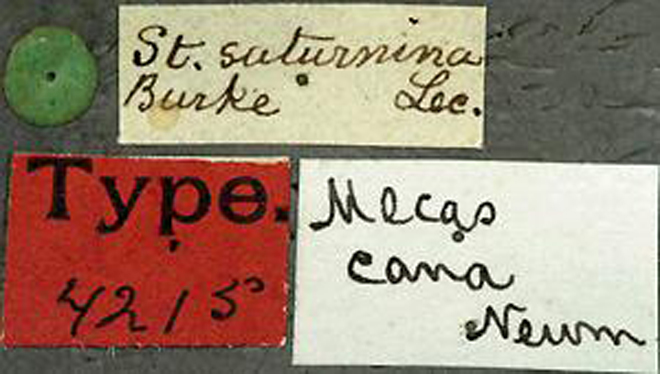 St. saturnina
Burke Lec.
Type.
4215
Mecas
cana
Newm